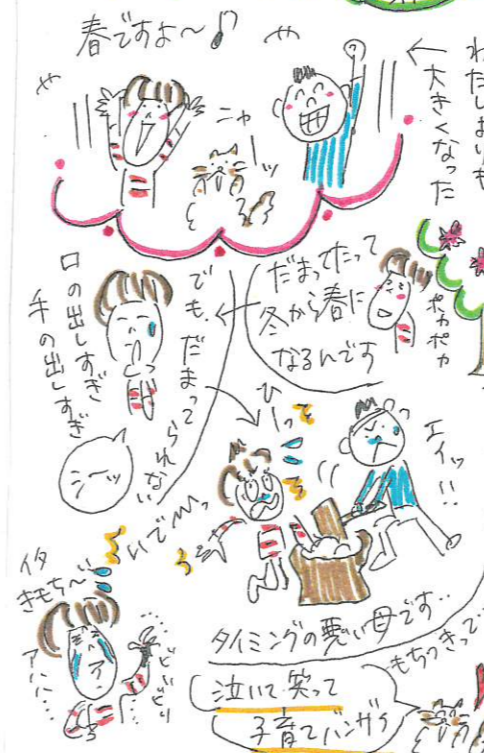 春ですよ〜♪
ニャーッ
わたしよりも
←大きくなった
だまってたって
冬から春に
なるんです
ポカポカ
でも、だまって
られない
口の出しすぎ
手の出しすぎ
シーッ
エイッ!!
イタ
きもち〜
タイミングの悪い母です‥
もちつきって
泣いて笑って
子育てバンザイ